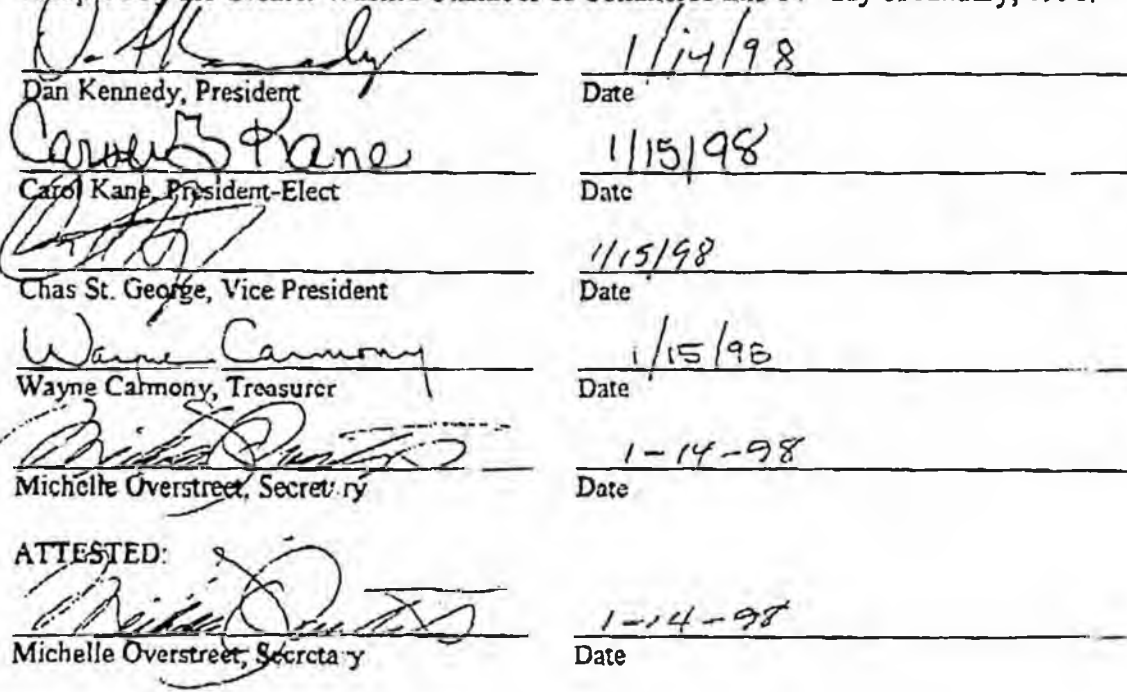 Greater Chamber of Commerce this day of January,
1/14/98
Dan Kennedy, President Date
Carol Kane 1/15/98
Carol Kane, President-Elect Date
1/15/98
Chas St. George, Vice President Date
Wayne Carmony 1/15/98
Wayne Carmony, Treasurer Date
1-14-98
Michelle Overstreet, Secretary Date
ATTESTED:
1-14-98
Michelle Overstreet, Secretary Date